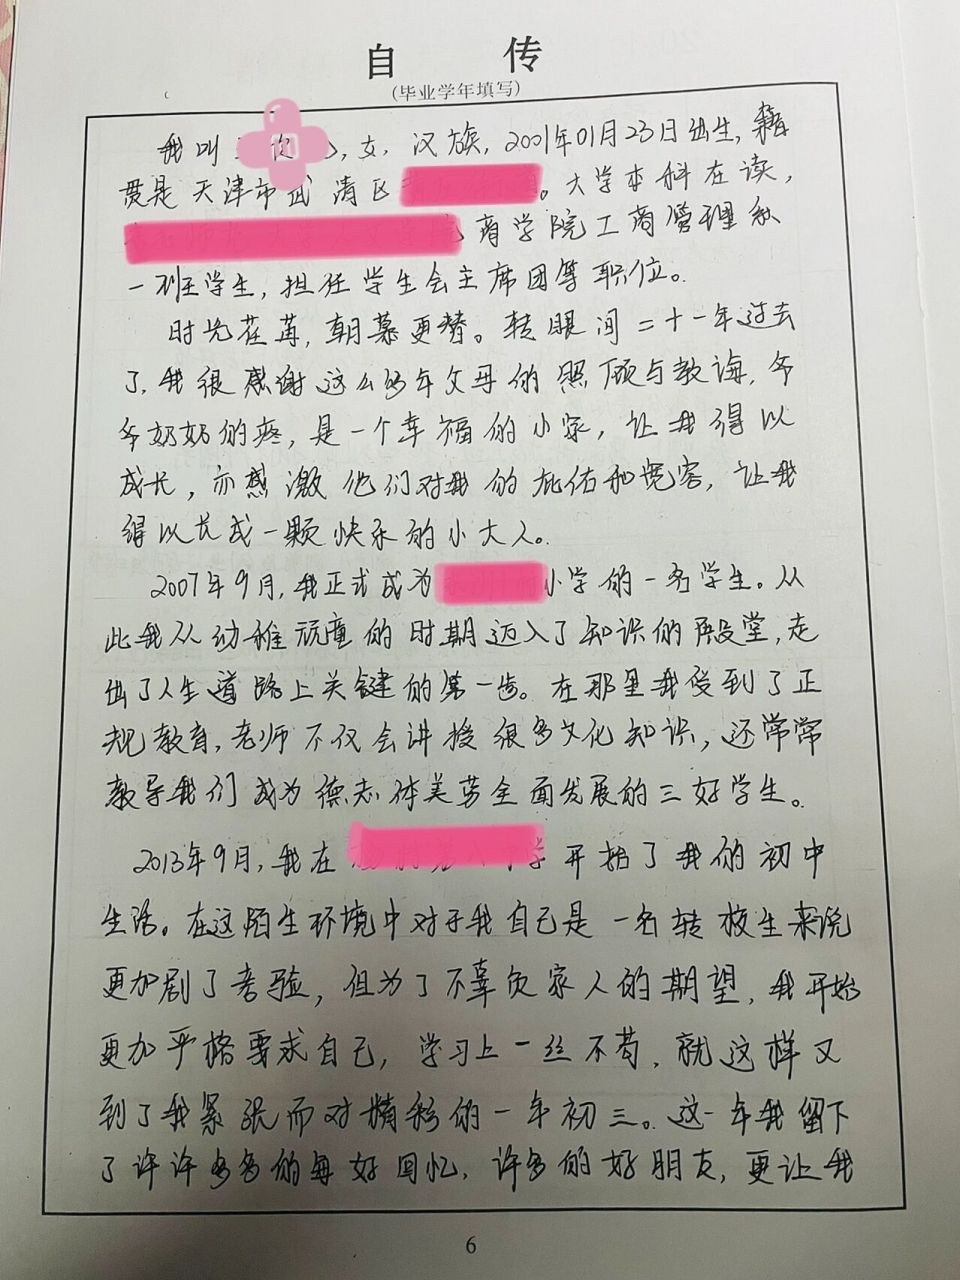 自 传
(毕业学年填写)
我叫，女，汉族，2001年01月23日出生，籍
贯是天津市武清区。大学本科在读，
商学院工商管理系
一班学生，担任学生会主席团等职位。
时光荏苒，朝慕更替。转眼间二十一年过去
了，我很感谢这么多年父母的照顾与教诲，爷
爷奶奶的疼，是一个幸福的小家，让我得以
成长，亦感激他们对我的庇佑和宽容，让我
得以长成一颗快乐的小大人。
2007年9月，我正式成为小学的一名学生。从
此我从幼稚顽童的时期迈入了知识的殿堂，走
出了人生道路上关键的第一步。在那里我受到了正
规教育，老师不仅会讲授很多文化知识，还常常
教导我们成为德志体美劳全面发展的三好学生。
2013年9月，我在学开始了我的初中
生活。在这陌生环境中对于我自己是一名转校生来说
更加剧了考验，但为了不辜负家人的期望，我开始
更加严格要求自己，学习上一丝不苟，就这样又
到了我紧张而对精彩的一年初三。这一年我留下
了许许多多的每好回忆，许多的好朋友，更让我
6